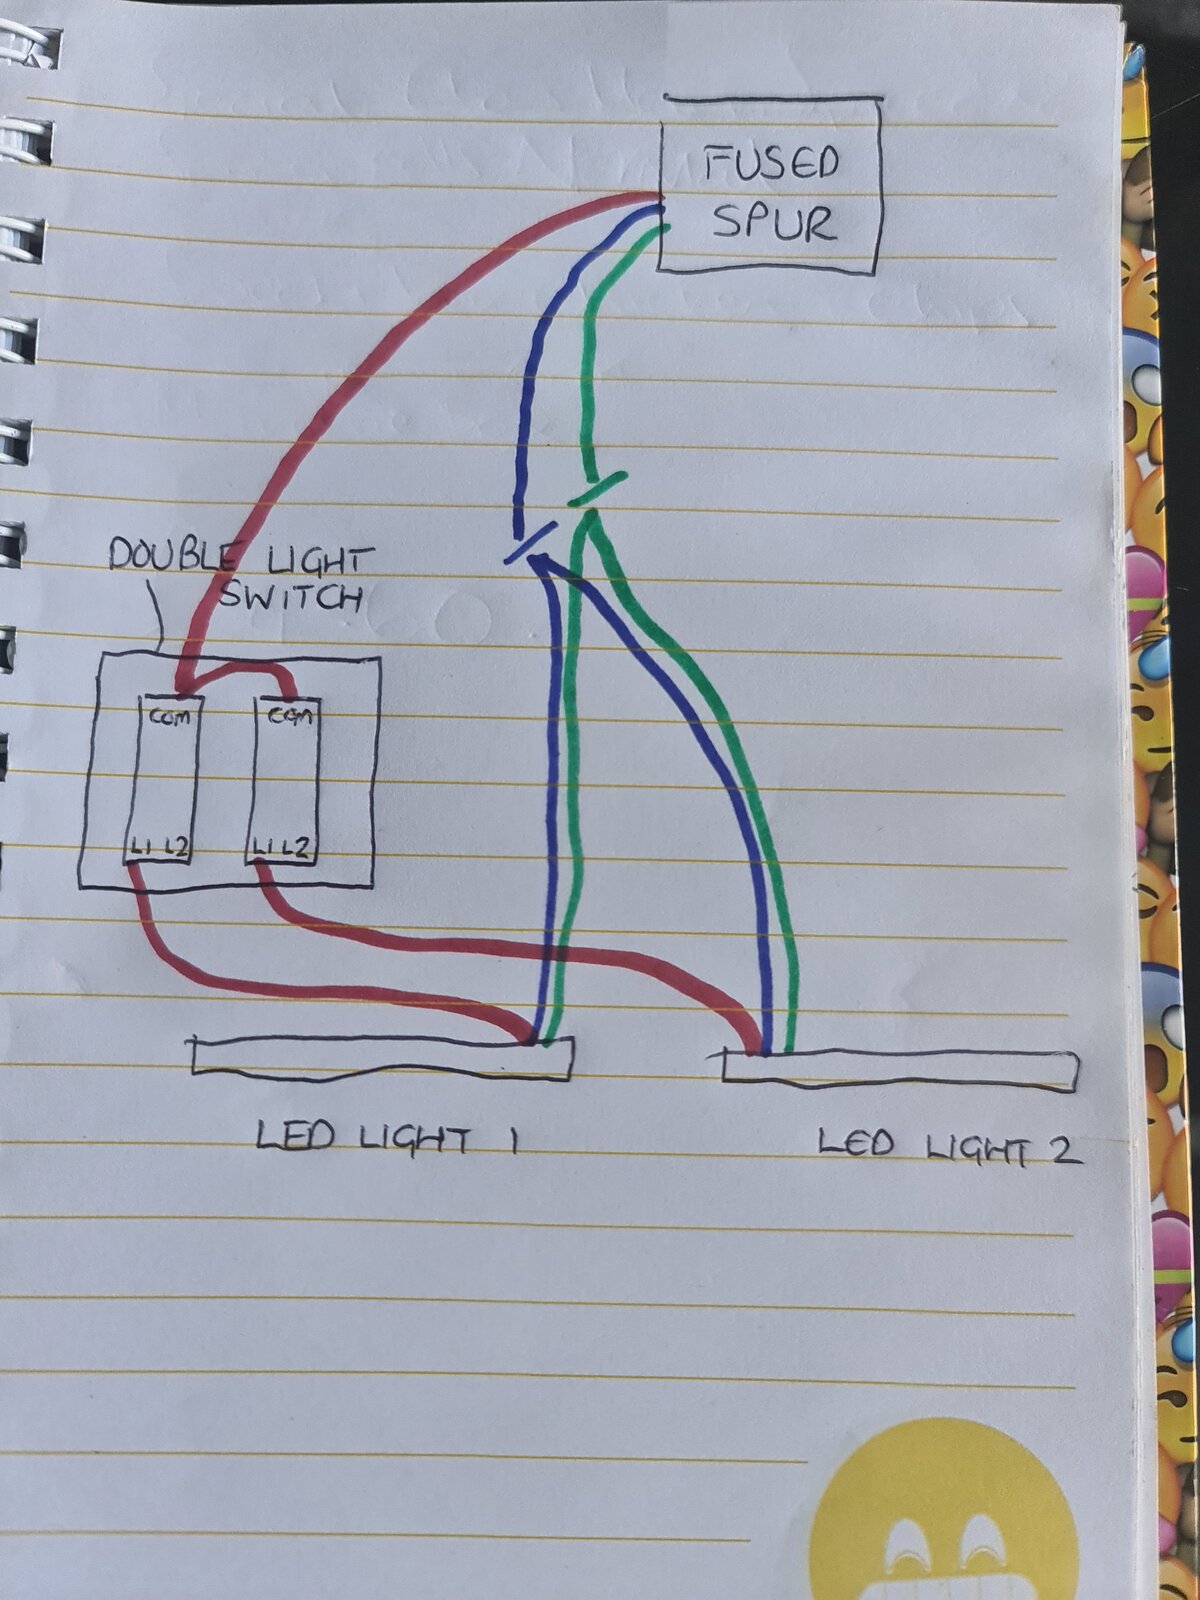 FUSED
SPUR
DOUBLE LIGHT
SWITCH
COM COM
L1 L2 L1 L2
LED LIGHT 1 LED LIGHT 2